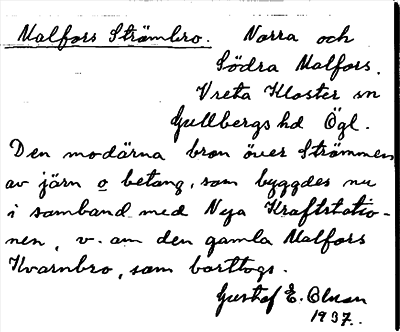 Malfors Strömbro. Norra och
Södra Malfors.
Vreta Kloster sn
Gullbergs hd Ögl.
Den modärna bron över Strömmen
av järn o betong, som byggdes nu
i samband med Nya Kraftstatio-
nen, v. om den gamla Malfors
Kvarnbro, som borttogs.
Gustaf E. Olsson
1937.